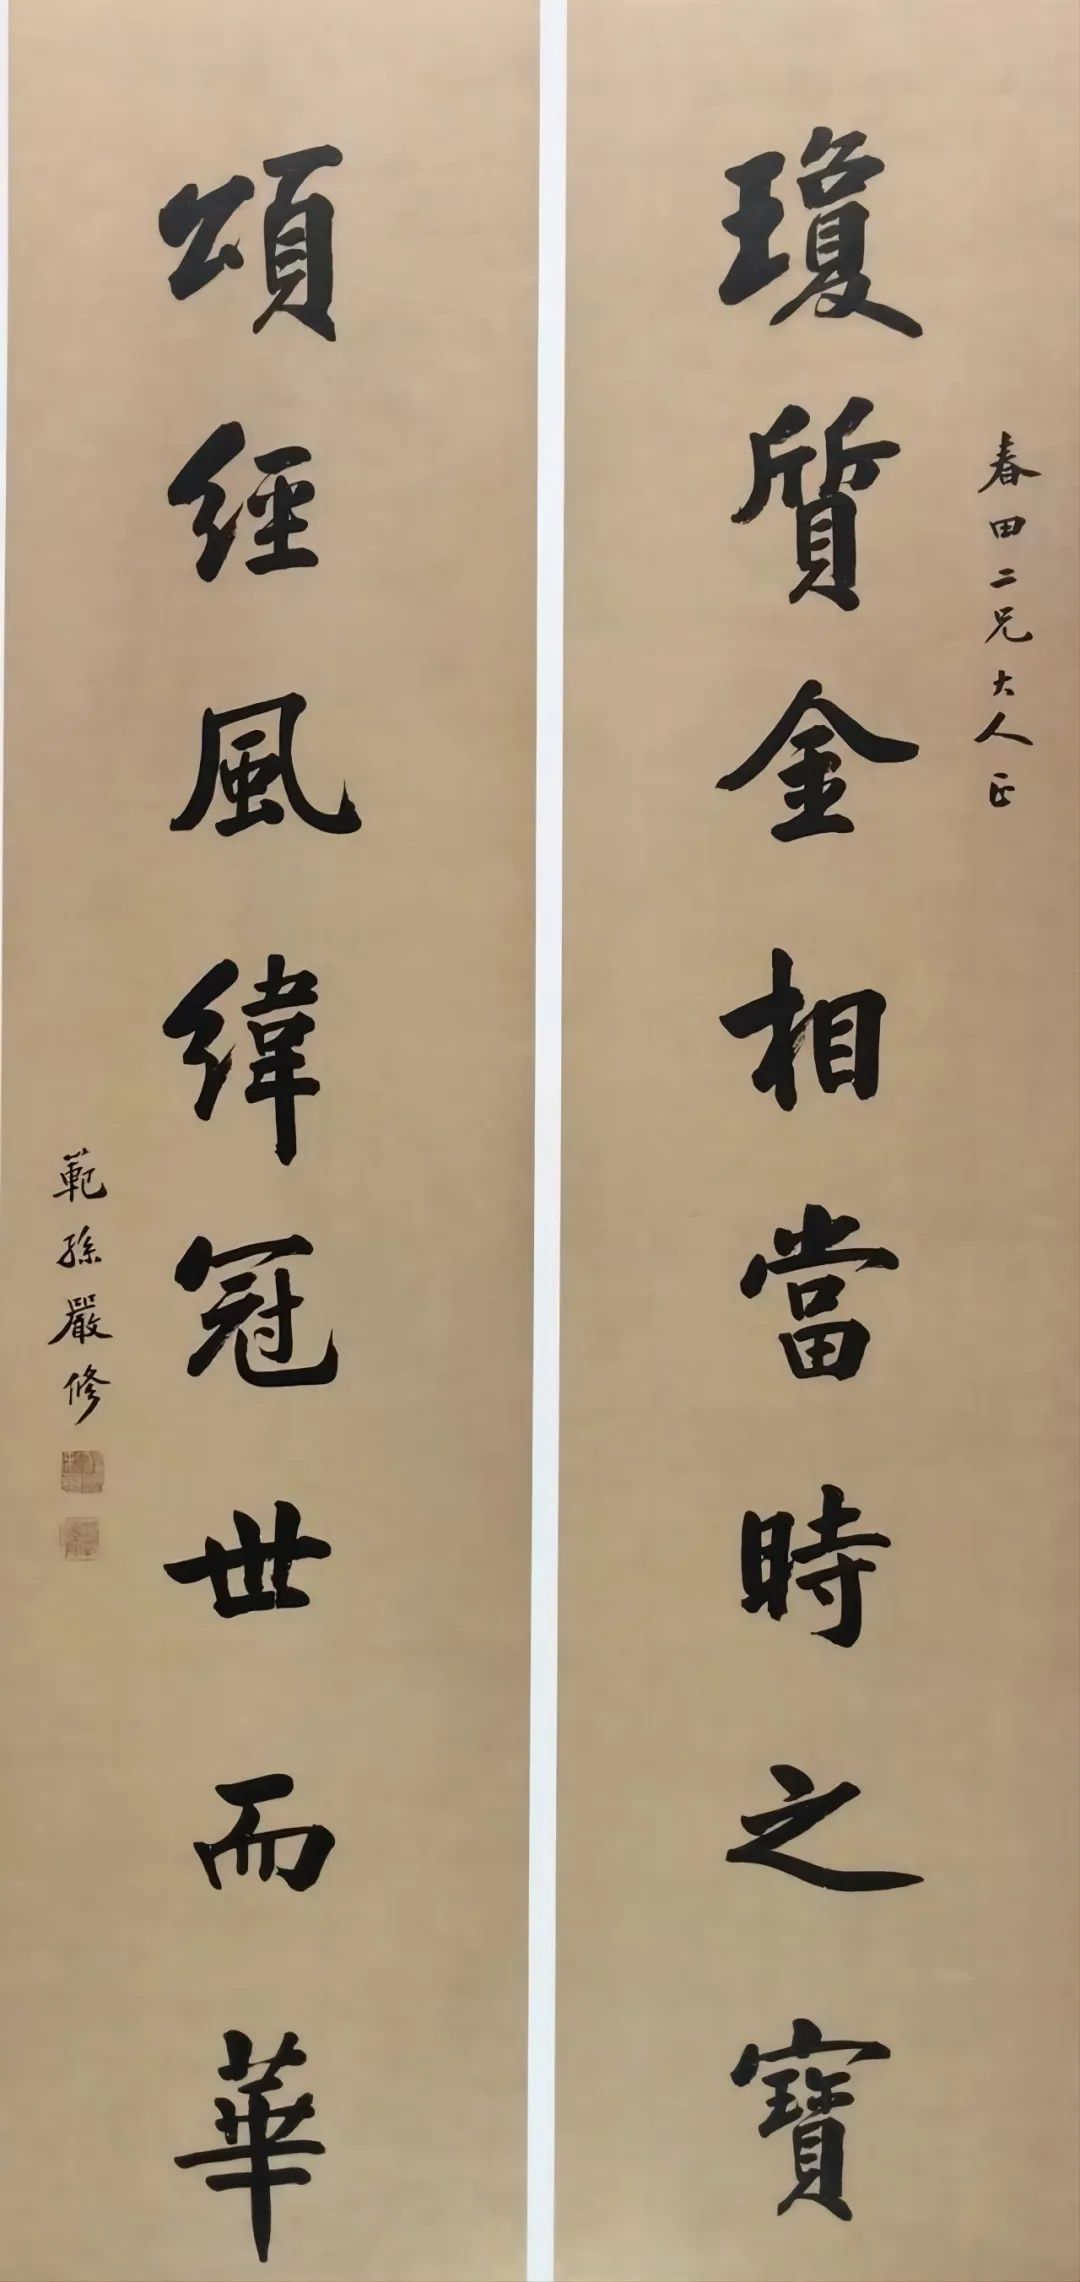 春田二兄大人正
瓊質金相當時之寶
頌經風緯冠世而華
範孫嚴修